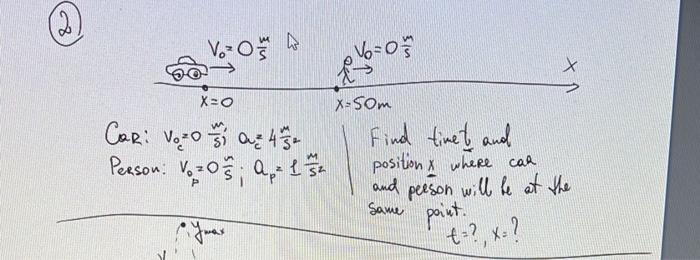 2
V₀=0 m/s
V₀=0 m/s
x
x=0
x=50m
Car: V₀c=0 m/s; a_c=4 m/s²
Person: V₀p=0 m/s; a_p=1 m/s²
Find time t and
position x where car
and person will be at the
same point.
t=?, x=?
y max